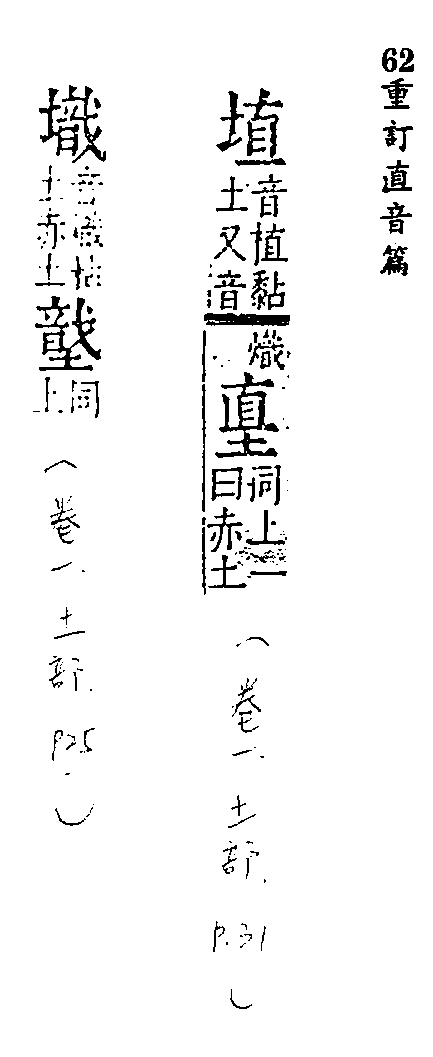 62重訂直音篇
埴
音植黏
土又音
熾
同上一
曰赤土
(卷一.土部.P.31)
音
土赤土
同
上
(卷一.土部.P25)